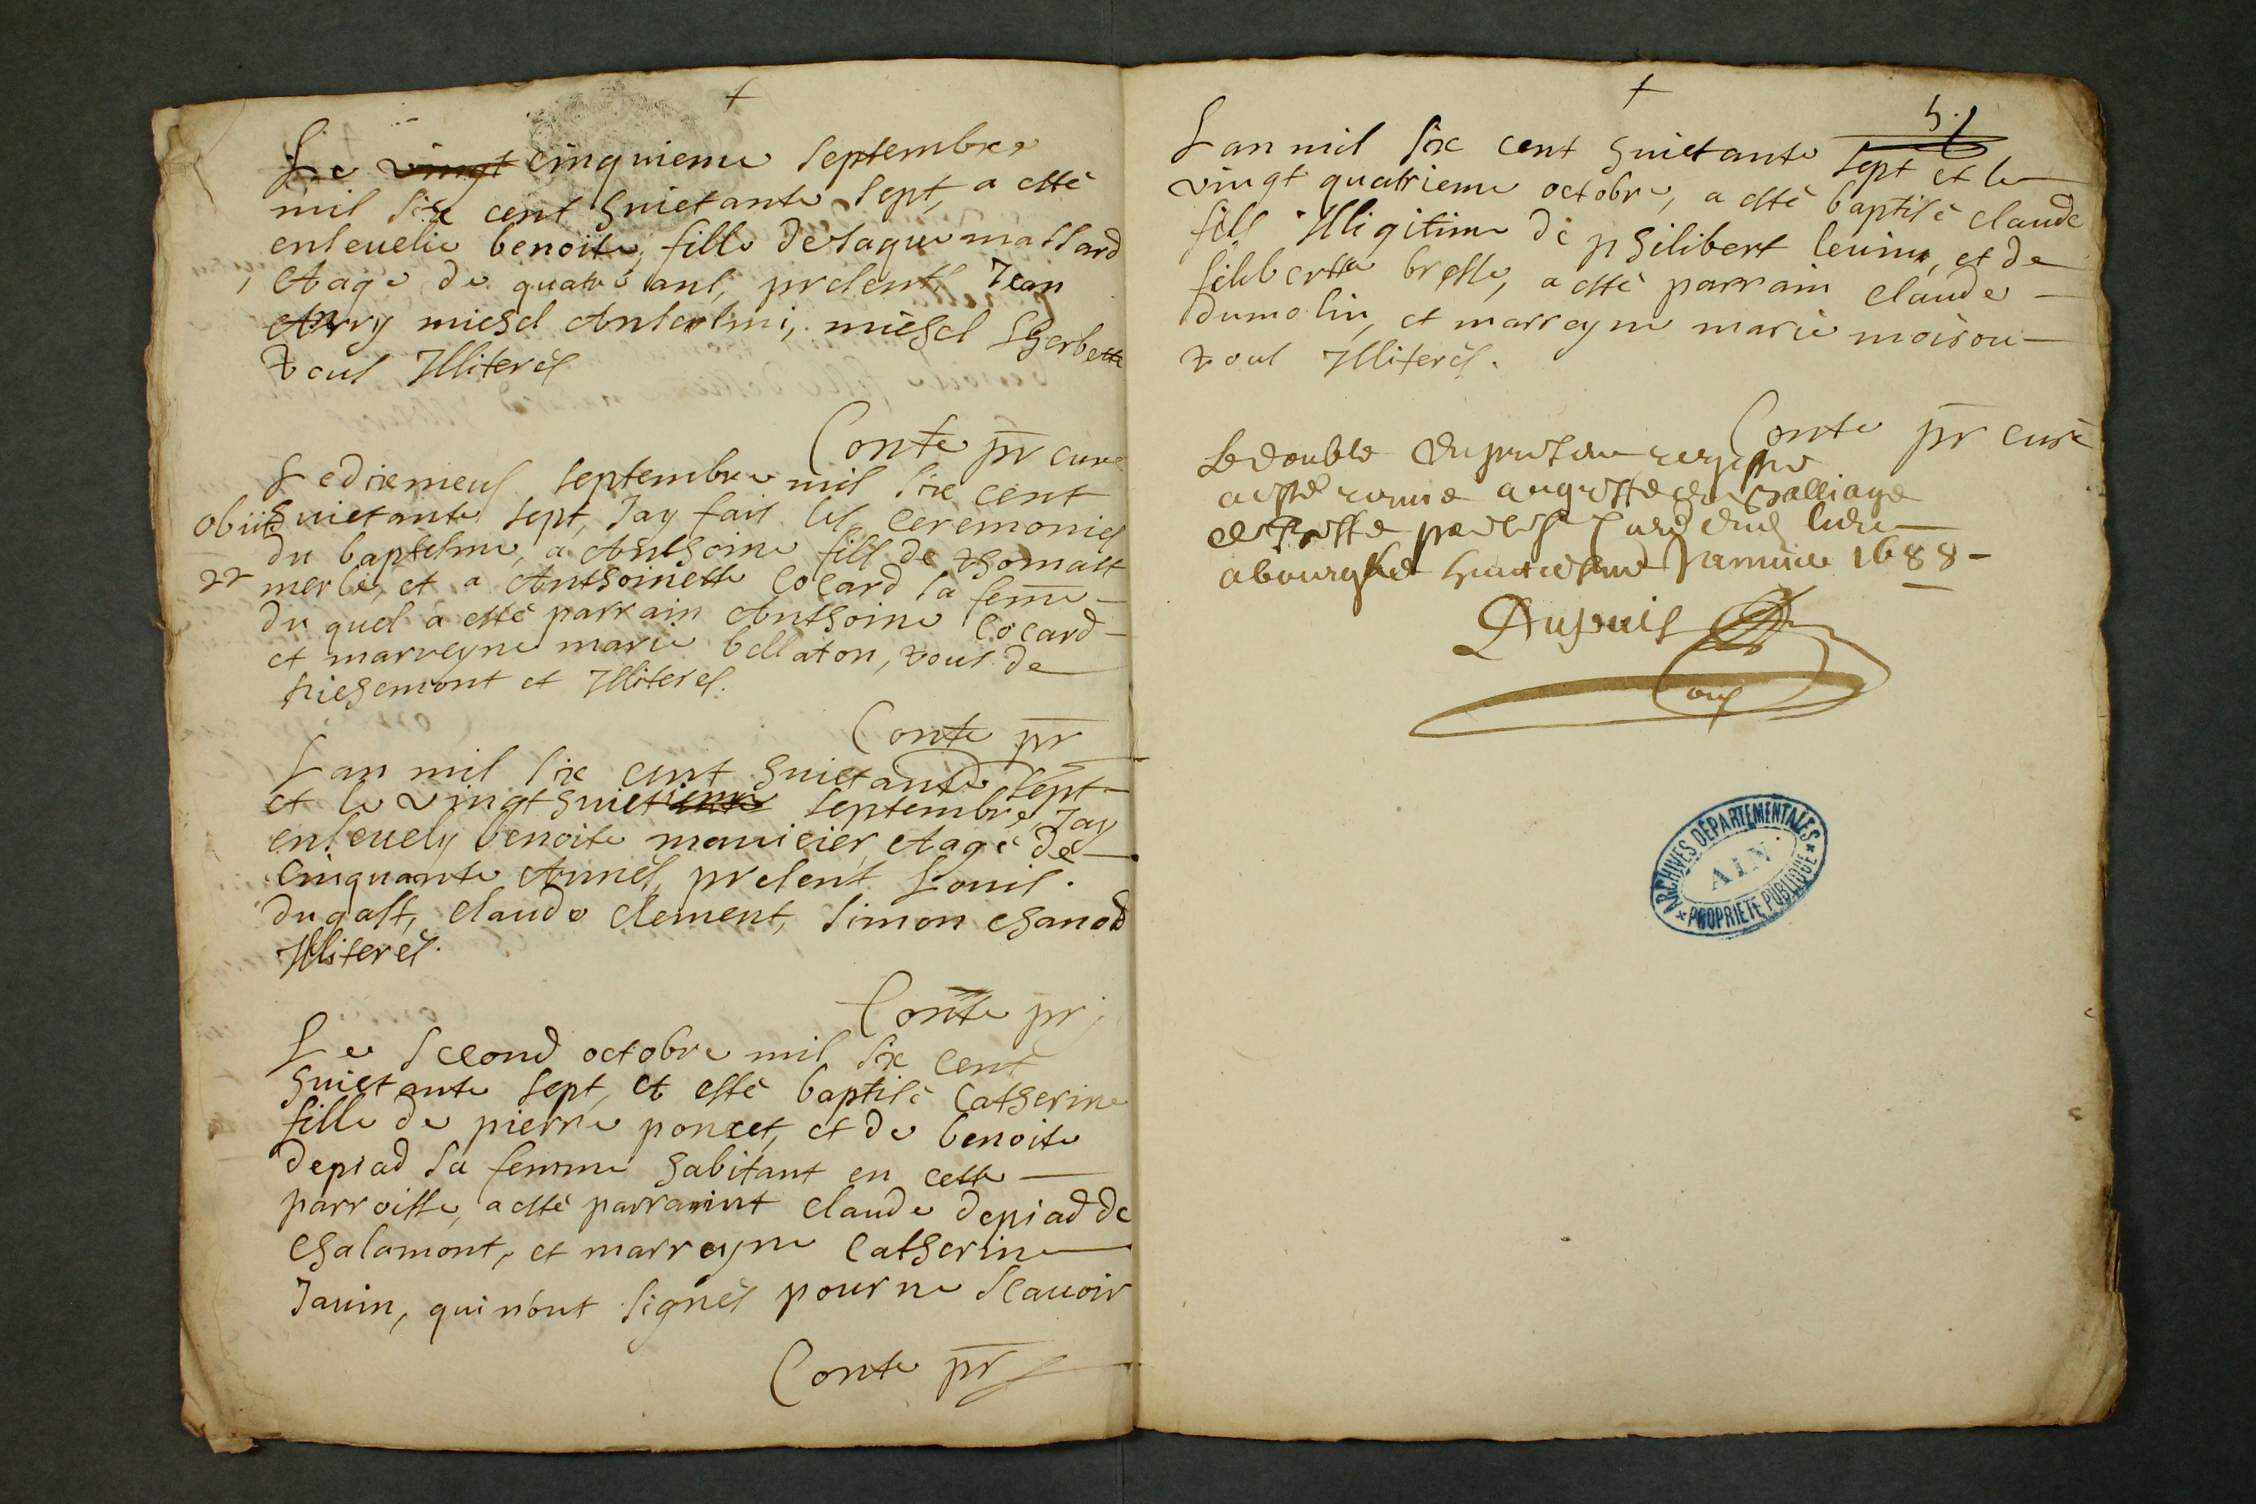 Le vingt cinquieme septembre
mil six cent huictante sept, a esté
enseuelie benoite, fille de Jaque massard
Aagé de quatre ans, presents Jean
Arry michel Anselmi, michel
tous Illiterés
Conte pr curé
Le dixieneuf septembre mil six cent
obiit huictante sept, Jay fait les ceremonies
du baptesme, a Anthoine fils de thomast
merle, et a Anthoinette Cocard sa feme
du quel a esté parrain Anthoine Cocard
et marreyne marie bellaton, tous de
richemont et Illiterés.
Conte pr
Lan mil six cent huictante sept
et le vingt huictieme septembre, Jay
enseuely benoite mauicier, Aagé de
Cinquante Annés, present Louis
dugast, claude clement, simon chanod
Illiterés.
Conte pr
Le second octobre mil six cent
huictante sept, at esté baptisé Catherine
fille de pierre poncet, et de benoite
depiad sa femme habitant en cette
parroisse, a esté parraint claude depiad de
chalamont, et marreyne Catherine
Jauin, qui nont signés pour ne scauoir
Conte pr
5.
Lan mil six cent huictante sept et le
vingt quatrieme octobre, a esté baptisé claude
fils Illigitime de philibert , et de
filiberte bresse, a esté parrain claude
dumolin, et marreyne marie moison
tous Illiterés.
Conte pr curé
Le double du present registre
a esté remis au greffe du Balliage
de Bresse par le sr curé dud lieu
a bourg le huictieme Januier 1688
ARCHIVES DÉPARTEMENTALES
AIN
PROPRIETE PUBLIQUE